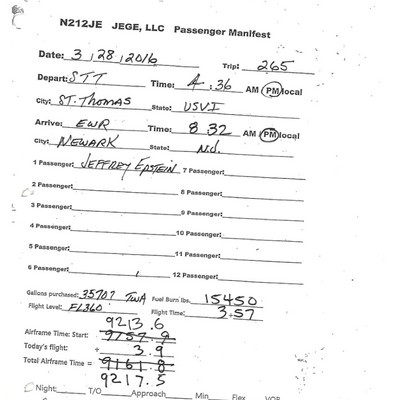 N212JE JEGE, LLC Passenger Manifest
Date: 3/28/2016 Trip: 265
Depart: STT Time: 4:36 AM PM local
City: ST. THOMAS State: USVI
Arrive: EWR Time: 8:32 AM PM local
City: NEWARK State: NJ.
1 Passenger: JEFFREY EPSTEIN 7 Passenger:
2 Passenger: 8 Passenger:
3 Passenger: 9 Passenger:
4 Passenger: 10 Passenger:
5 Passenger: 11 Passenger:
6 Passenger: 12 Passenger:
Gallons purchased: 35707 TWA Fuel Burn lbs. 15450
Flight Level: FL360 Flight Time: 3.57
9213.6
Airframe Time: Start: 9757.9
Today's flight: + 3.9
Total Airframe Time = 9161.8
9217.5
Night: T/O Approach Min Flex VOR